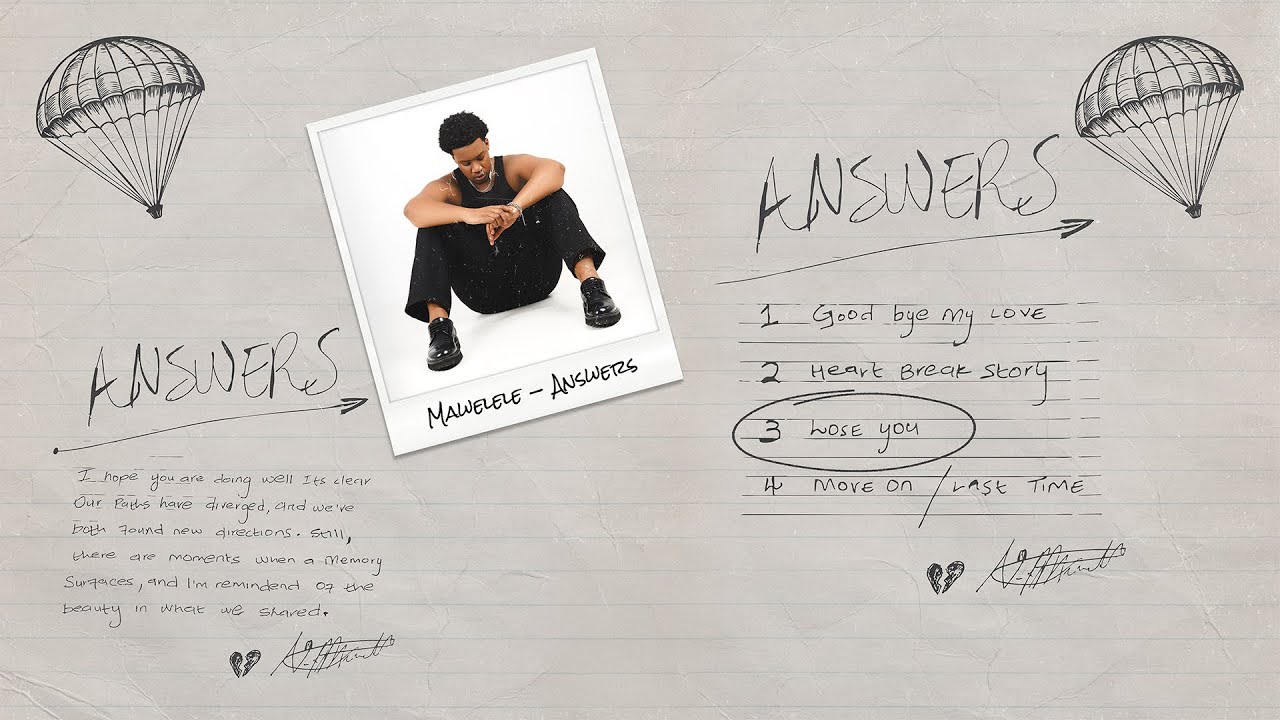 ANSWERS
I hope you are doing well Its clear
Our Paths have diverged, and we've
both found new directions. Still,
there are moments when a Memory
Surfaces, and I'm remindend of the
beauty in what we shared.
Mawelele – Answers
ANSWERS
1 Good bye My LOVE
2 Heart Break Story
3 Lose you
4 Move On / Last Time